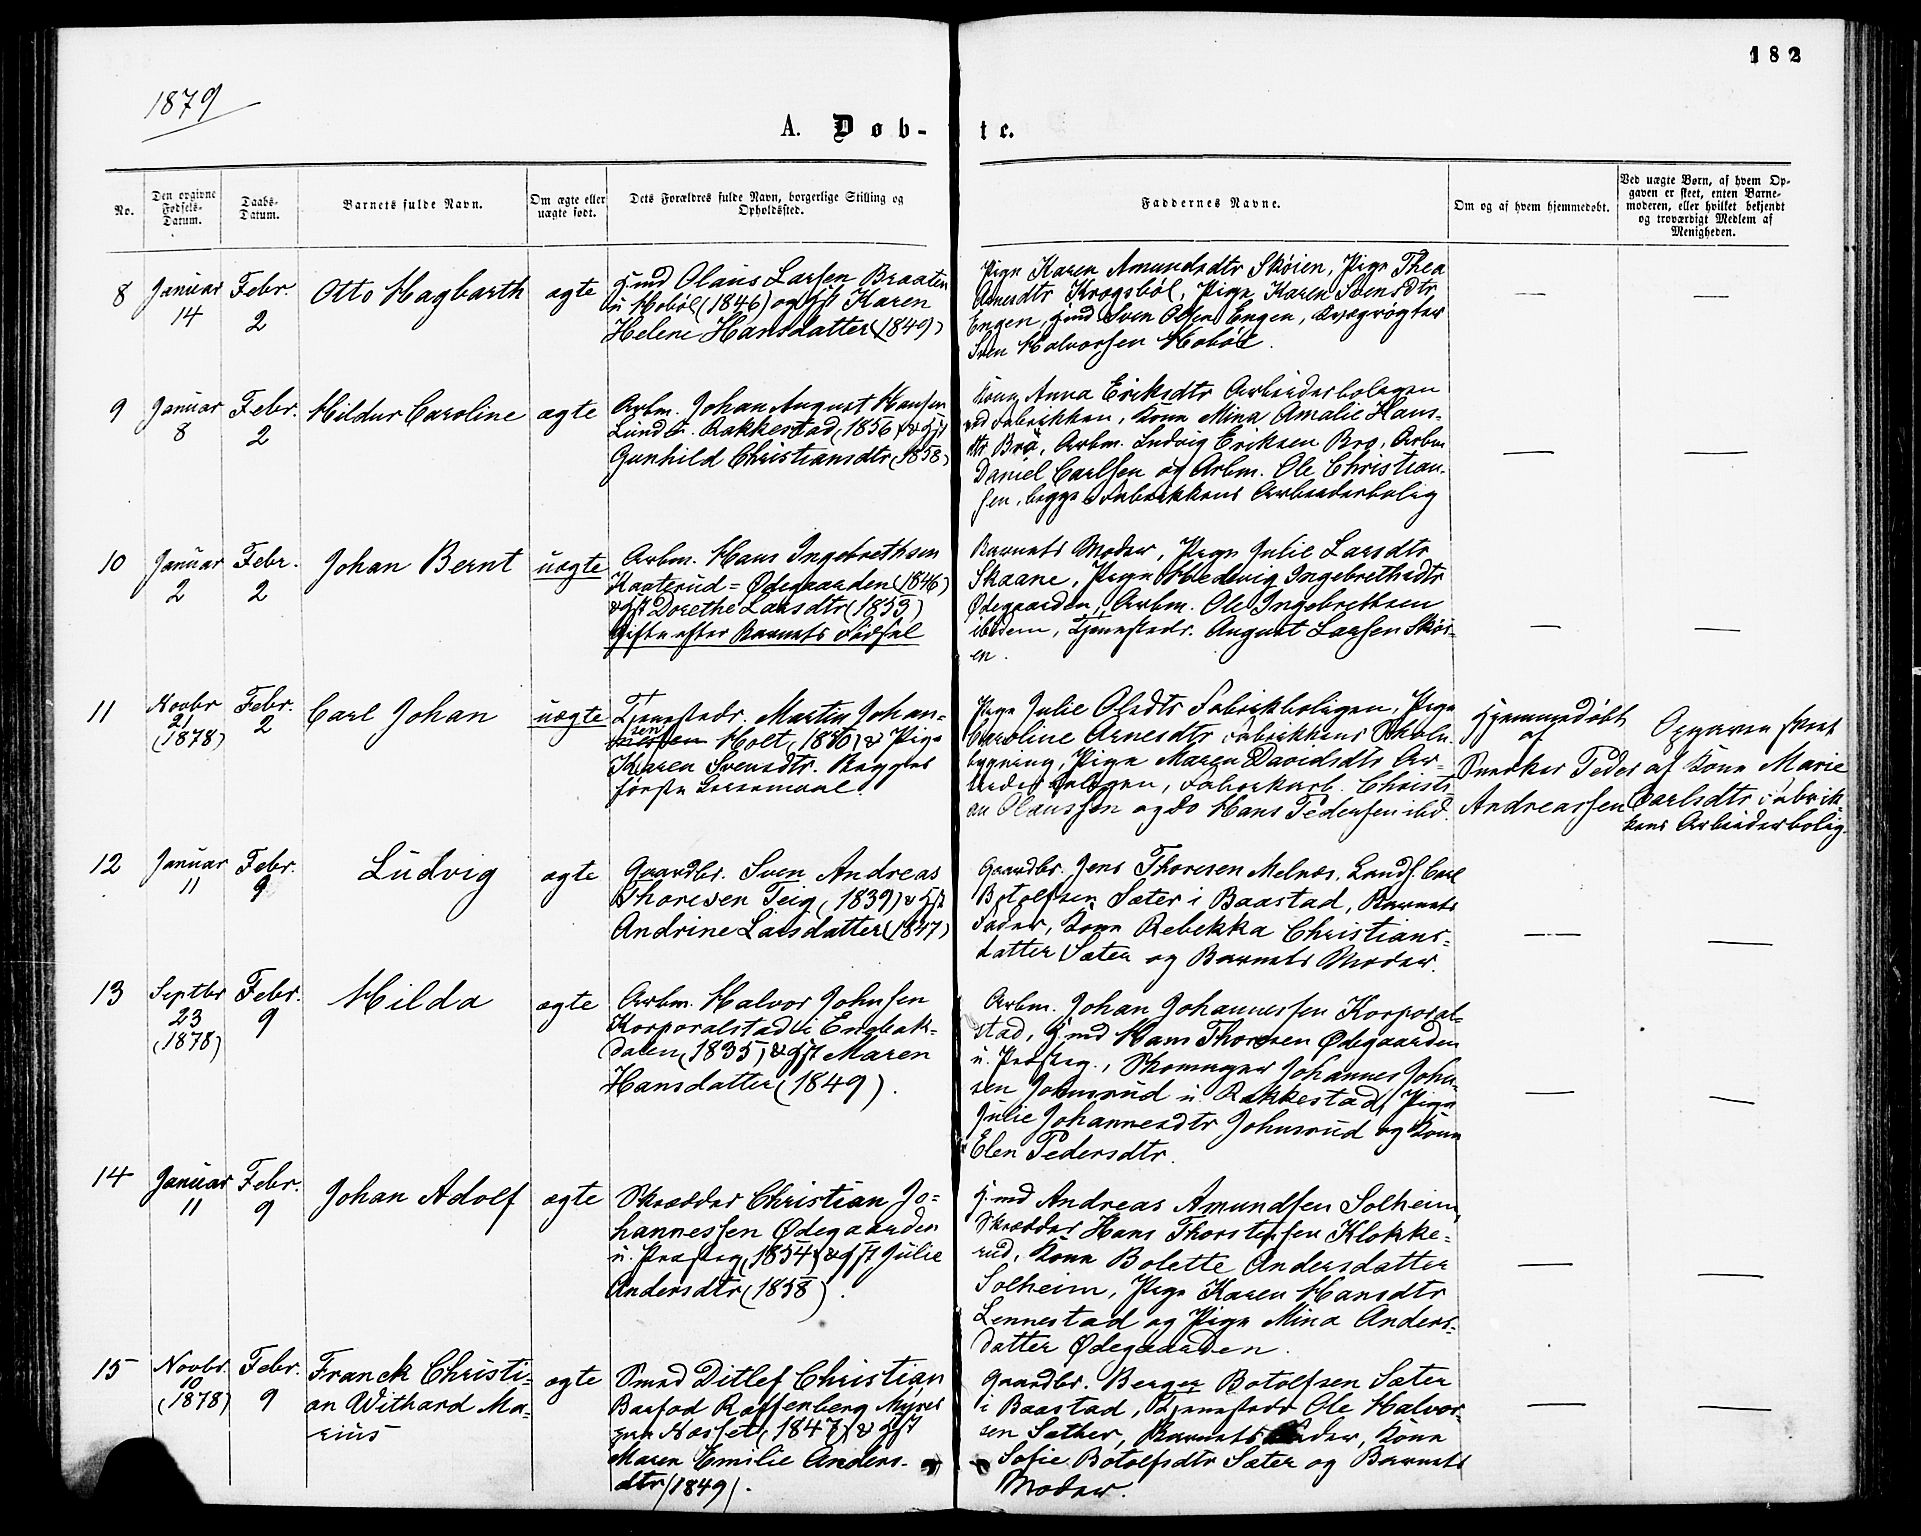 182
1879
A. Døb-
te.
No.
Den opgivne Fødsels-Datum.
Daabs-Datum.
Barnets fulde Navn.
Om ægte eller uægte født.
Dets Forældres fulde Navn, borgerlige Stilling og Opholdssted.
Faddernes Navne.
Om og af hvem hjemmedøbt.
Ved uægte Børn, af hvem Op-
gaven er skeet, enten Barne-
moderen, eller hvilket bekjendt
og troværdigt Medlem af
Menigheden.
8
Januar
14
Febr.
2
Otto Hagbarth
ægte
Hmd Olaus Larsen Braaten
u. Hobøl (1846) og Hst Karen
Helene Hansdatter (1849)
Pige Karen Amundsdtr Skøien, Pige Thea
Arnesdtr Krogsbøl, Pige Karen Svensdtr
Engen, Hmd Sven Olsen Engen, Kvægrøgter
Sven Halvorsen Hobøl.
—
—
9
Januar
8
Febr.
2
Hildur Caroline
ægte
Arbm. Johan August Hansen
Lund u. Rakkestad (1856) & Hst
Gunhild Christiansdtr (1858)
Kone Anna Eriksdtr Arbeiderboligen
ved Fabrikken, Kone Mina Amalie Hans-
dtr Bro, Arbm. Ludvig Eriksen Bro, Arbm
Daniel Carlsen og Arbm. Ole Christian-
sen, begge Fabrikkens Arbeiderbolig
—
—
10
Januar
2
Febr.
2
Johan Bernt
uægte
Arbm. Hans Ingebrethsen
Kaaterud = Ødegaarden (1846)
& Hst Dorethe Larsdtr (1853)
Gifte efter Barnets Fødsel
Barnets Moder, Pige Julie Larsdtr
Skaane, Pige Hedevig Ingebrethsdtr
Ødegaarden, Arbm. Ole Ingebrethsen
ibidem, Tjenestedr. August Larsen Skøi-
en.
—
—
11
Novbr
21
(1878)
Febr.
2
Carl Johan
uægte
Tjenestedr. Martin Johan-
sen Holt (1856) & Pige
Karen Svensdtr. Begges
første Leiermaal.
Pige Julie Olsdtr Fabrikboligen, Pige
Caroline Arnesdtr Fabrikkens Skole-
bygning, Pige Maren Davidsdtr Ar-
beiderboligen, Fabrikarb. Christi-
an Olaussen og do Hans Pedersen ibd.
Hjemmedøbt
af
Snedker Peder
Andreassen
Opgaven skeet
af Kone Marie
Carlsdtr Fabrik-
kens Arbeiderbolig
12
Januar
11
Febr.
9
Ludvig
ægte
Gaardbr. Sven Andreas
Thoresen Teig (1839) & Hst
Andrine Larsdatter (1847)
Gaardbr. Jens Thoresen Melnæs, Landh. Carl
Botolfsen Sæter i Baastad, Barnets
Fader, Kone Rebekka Christians-
datter Sæter og Barnets Moder.
—
—
13
Septbr
23
(1878)
Febr.
9
Hilda
ægte
Arbm. Halvor Johnsen
Korporalstad i Enebak-
dalen (1835) & Hst Maren
Hansdatter (1849).
Arbm. Johan Johannessen Korporal-
stad, Hmd Hans Thoresen Ødegaarden
u. Præsteg., Skomager Johannes John-
sen Johnsrud u. Rakkestad, Pige
Julie Johannesdtr Johnsrud og Kone
Elen Pedersdtr.
—
—
14
Januar
11
Febr.
9
Johan Adolf
ægte
Skrædder Christian Jo-
hannessen Ødegaarden
u. Præsteg (1854) & Hst Julie
Andersdtr (1858).
Hmd Andreas Amundsen Solheim,
Skrædder Hans Thorstensen Klokke-
rud, Kone Bolette Andersdatter
Solheim, Pige Karen Hansdtr
Lennestad og Pige Mina Anders-
datter Ødegaarden.
—
—
15
Novbr.
10
(1878)
Febr.
9
Franck Christi-
an Withard Ma-
rius
ægte
Smed Ditlef Christian
Barfod Raffenberg
Næsset (1847) & Hst
Maren Emilie Anders-
dtr (1849).
Gaardbr. Berger Botolfsen Sæter
i Baastad, Tjenestedr Ole Halvor-
sen Sæther, Barnets Fader, Kone
Sofie Botolfsdtr Sæter og Barnets
Moder.
—
—